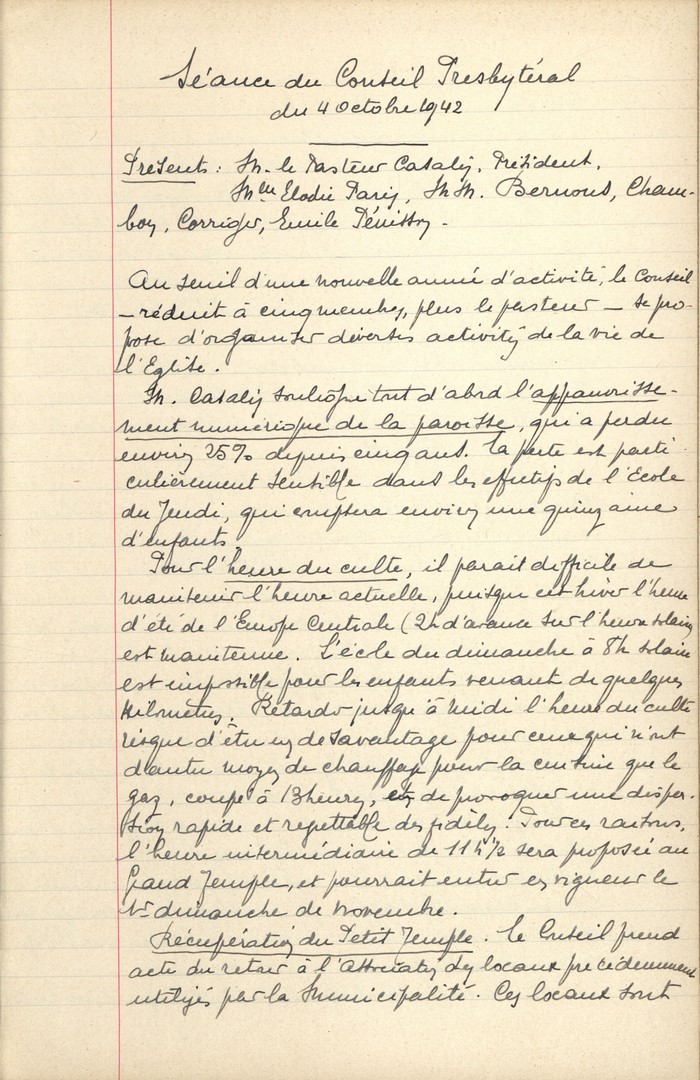 Séance du Conseil Presbytéral
du 4 Octobre 1942
Présents : M. le Pasteur Cadalis, Président,
Mlle Elodie Paris, MM. Bernous, Cham-
boy, Corriger, Emile Pénisson.
Au seuil d'une nouvelle année d'activité, le Conseil
– réduit à cinq membres, plus le pasteur – se pro-
pose d'organiser diverses activités de la vie de
l'Eglise.
M. souligne tout d'abord l'appauvrisse-
ment numérique de la paroisse, qui a perdu
environ 25% depuis cinq ans. La perte est parti
culièrement sensible dans les effectifs de l'Ecole
du Jeudi, qui comptera environ une quinzaine
d'enfants.
Pour l'heure du culte, il parait difficile de
maintenir l'heure actuelle, puisque cet hiver l'heure
d'été de l'Europe Centrale (2h d'avance sur l'heure solaire
est maintenue. L'école du dimanche à 8h solaire
est impossible pour les enfants venant de quelques
kilomètres. Retarder jusqu'à midi l'heure du culte
risque d'être un désavantage pour ceux qui n'ont
d'autre moyen de chauffage pour la cuisine que le
gaz, coupé à 13 heures, et de provoquer une disper-
sion rapide et regrettable des fidèles. Pour ces raisons,
l'heure intermédiaire de 11h ½ sera proposée au
Grand Temple, et pourrait entrer en vigueur le
1er dimanche de novembre.
Récupération du Petit Temple. Le Conseil prend
acte du retour à l'Association des locaux précédemment
utilisés par la Municipalité. Ces locaux sont